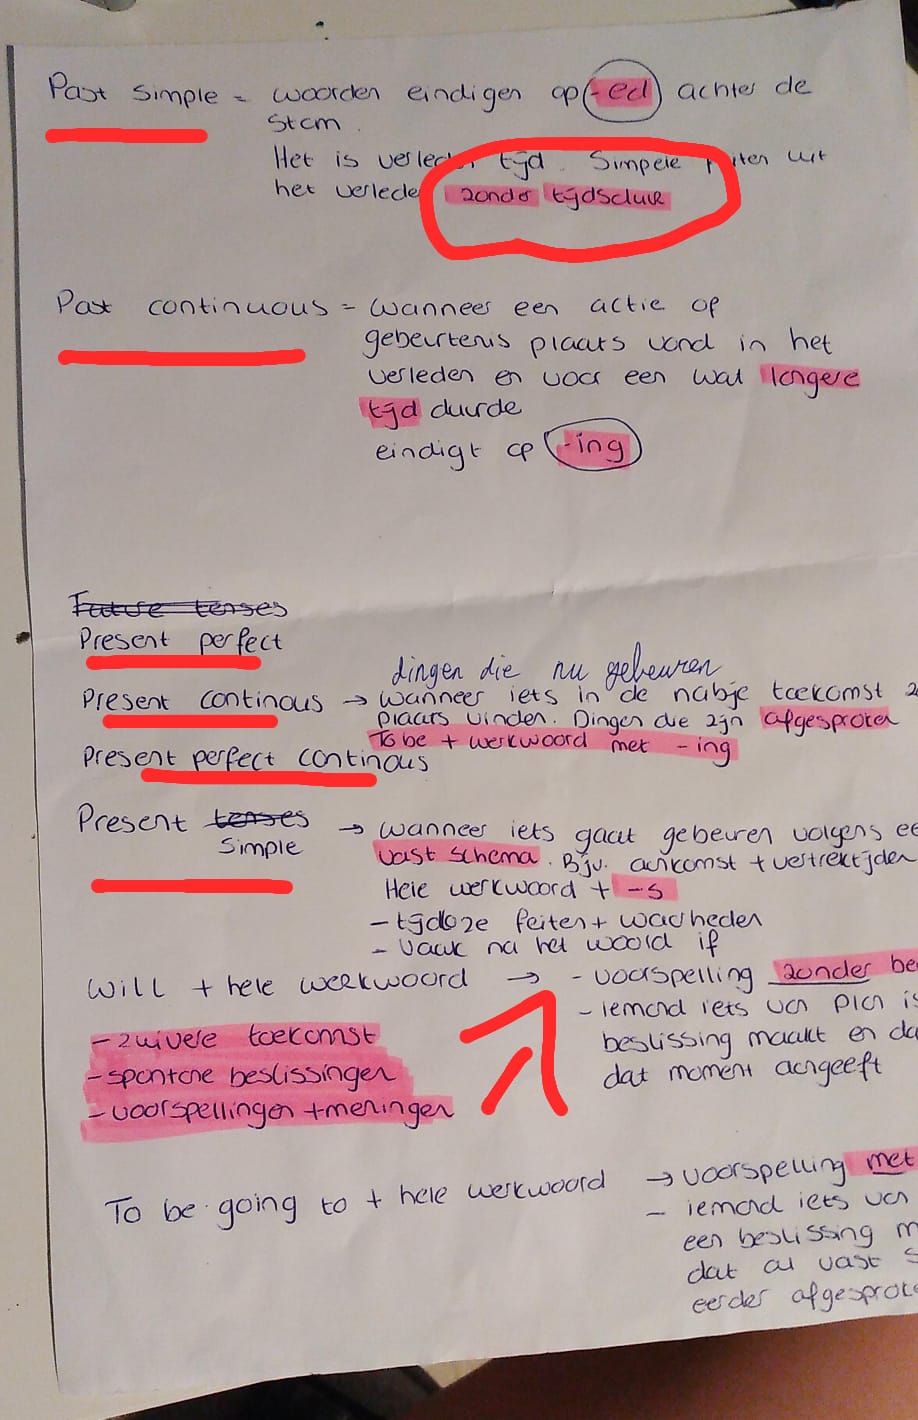 Past simple = woorden eindigen op -ed achter de
stam.
Het is verleden tijd. Simpele feiten uit
het verleden zonder tijdsduur
Past continuous = wanneer een actie of
gebeurtenis plaats vond in het
verleden en voor een wat langere
tijd duurde
eindigt op -ing
Future tenses
Present perfect
dingen die nu gebeuren
Present continous → wanneer iets in de nabije toekomst
plaats vinden. Dingen die zijn afgesproken
To be + werkwoord met -ing
Present perfect continous
Present tenses → wanneer iets gaat gebeuren volgens
simple
vast schema. Bijv. aankomst + vertrektijden
Hele werkwoord + -s
- tijdloze feiten + waarheden
- vaak na het woord if
Will + hele werkwoord → - voorspelling zonder
- iemand iets van plan is
- zuivere toekomst
beslissing maakt en
- spontane beslissingen
dat moment aangeeft
- voorspellingen + meningen
To be going to + hele werkwoord → voorspelling met
- iemand iets van
een beslissing
dat al vast
eerder afgesproken